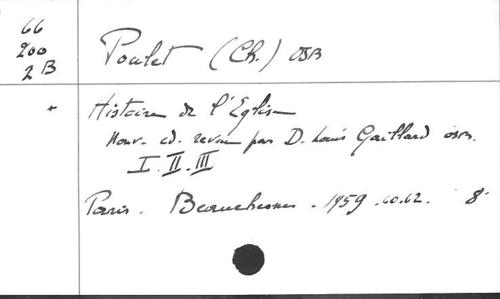 66
200
2 B
Poulet (Ch.) OSB
* Histoire de l'Eglise
Nouv. ed. revue par D. Louis Gaillard osb.
I. II. III
Paris. Beauchesne. - 1959. 60. 62. 8°